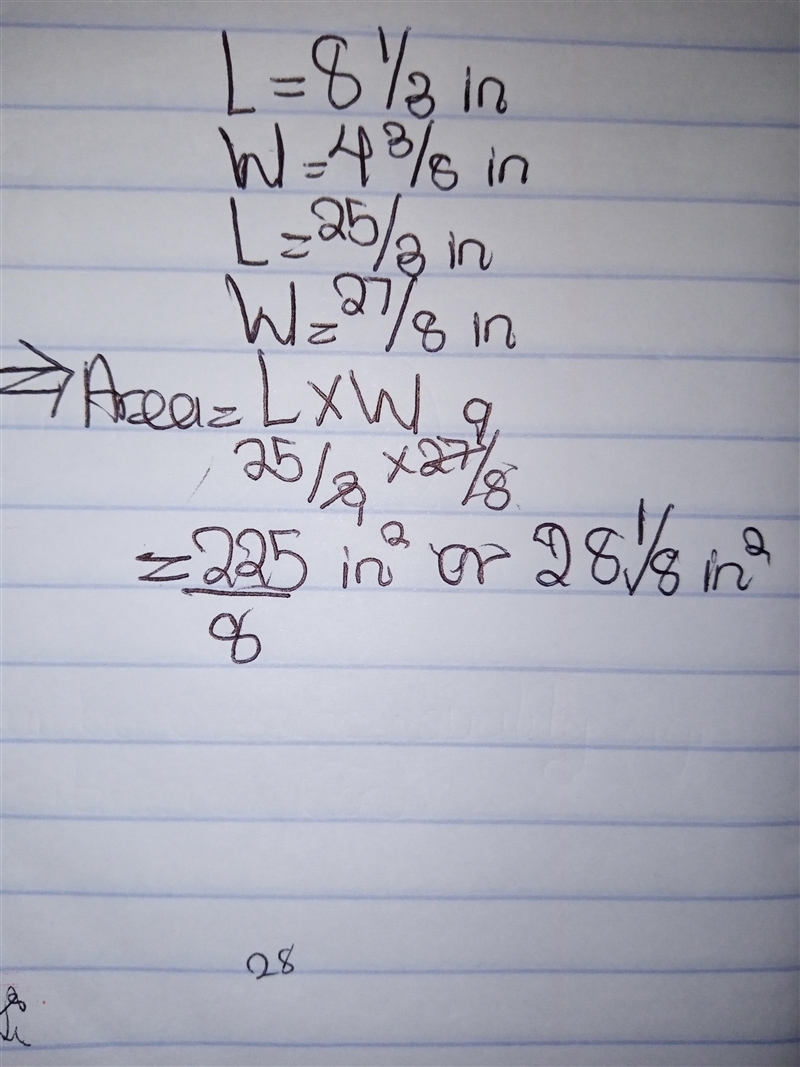 L = 8 1/3 in
W = 4 3/8 in
L = 25/3 in
W = 27/8 in
⇒ Area = L x W
9
25/3 x 27/8
1
= 225/8 in² or 28 1/8 in²
28